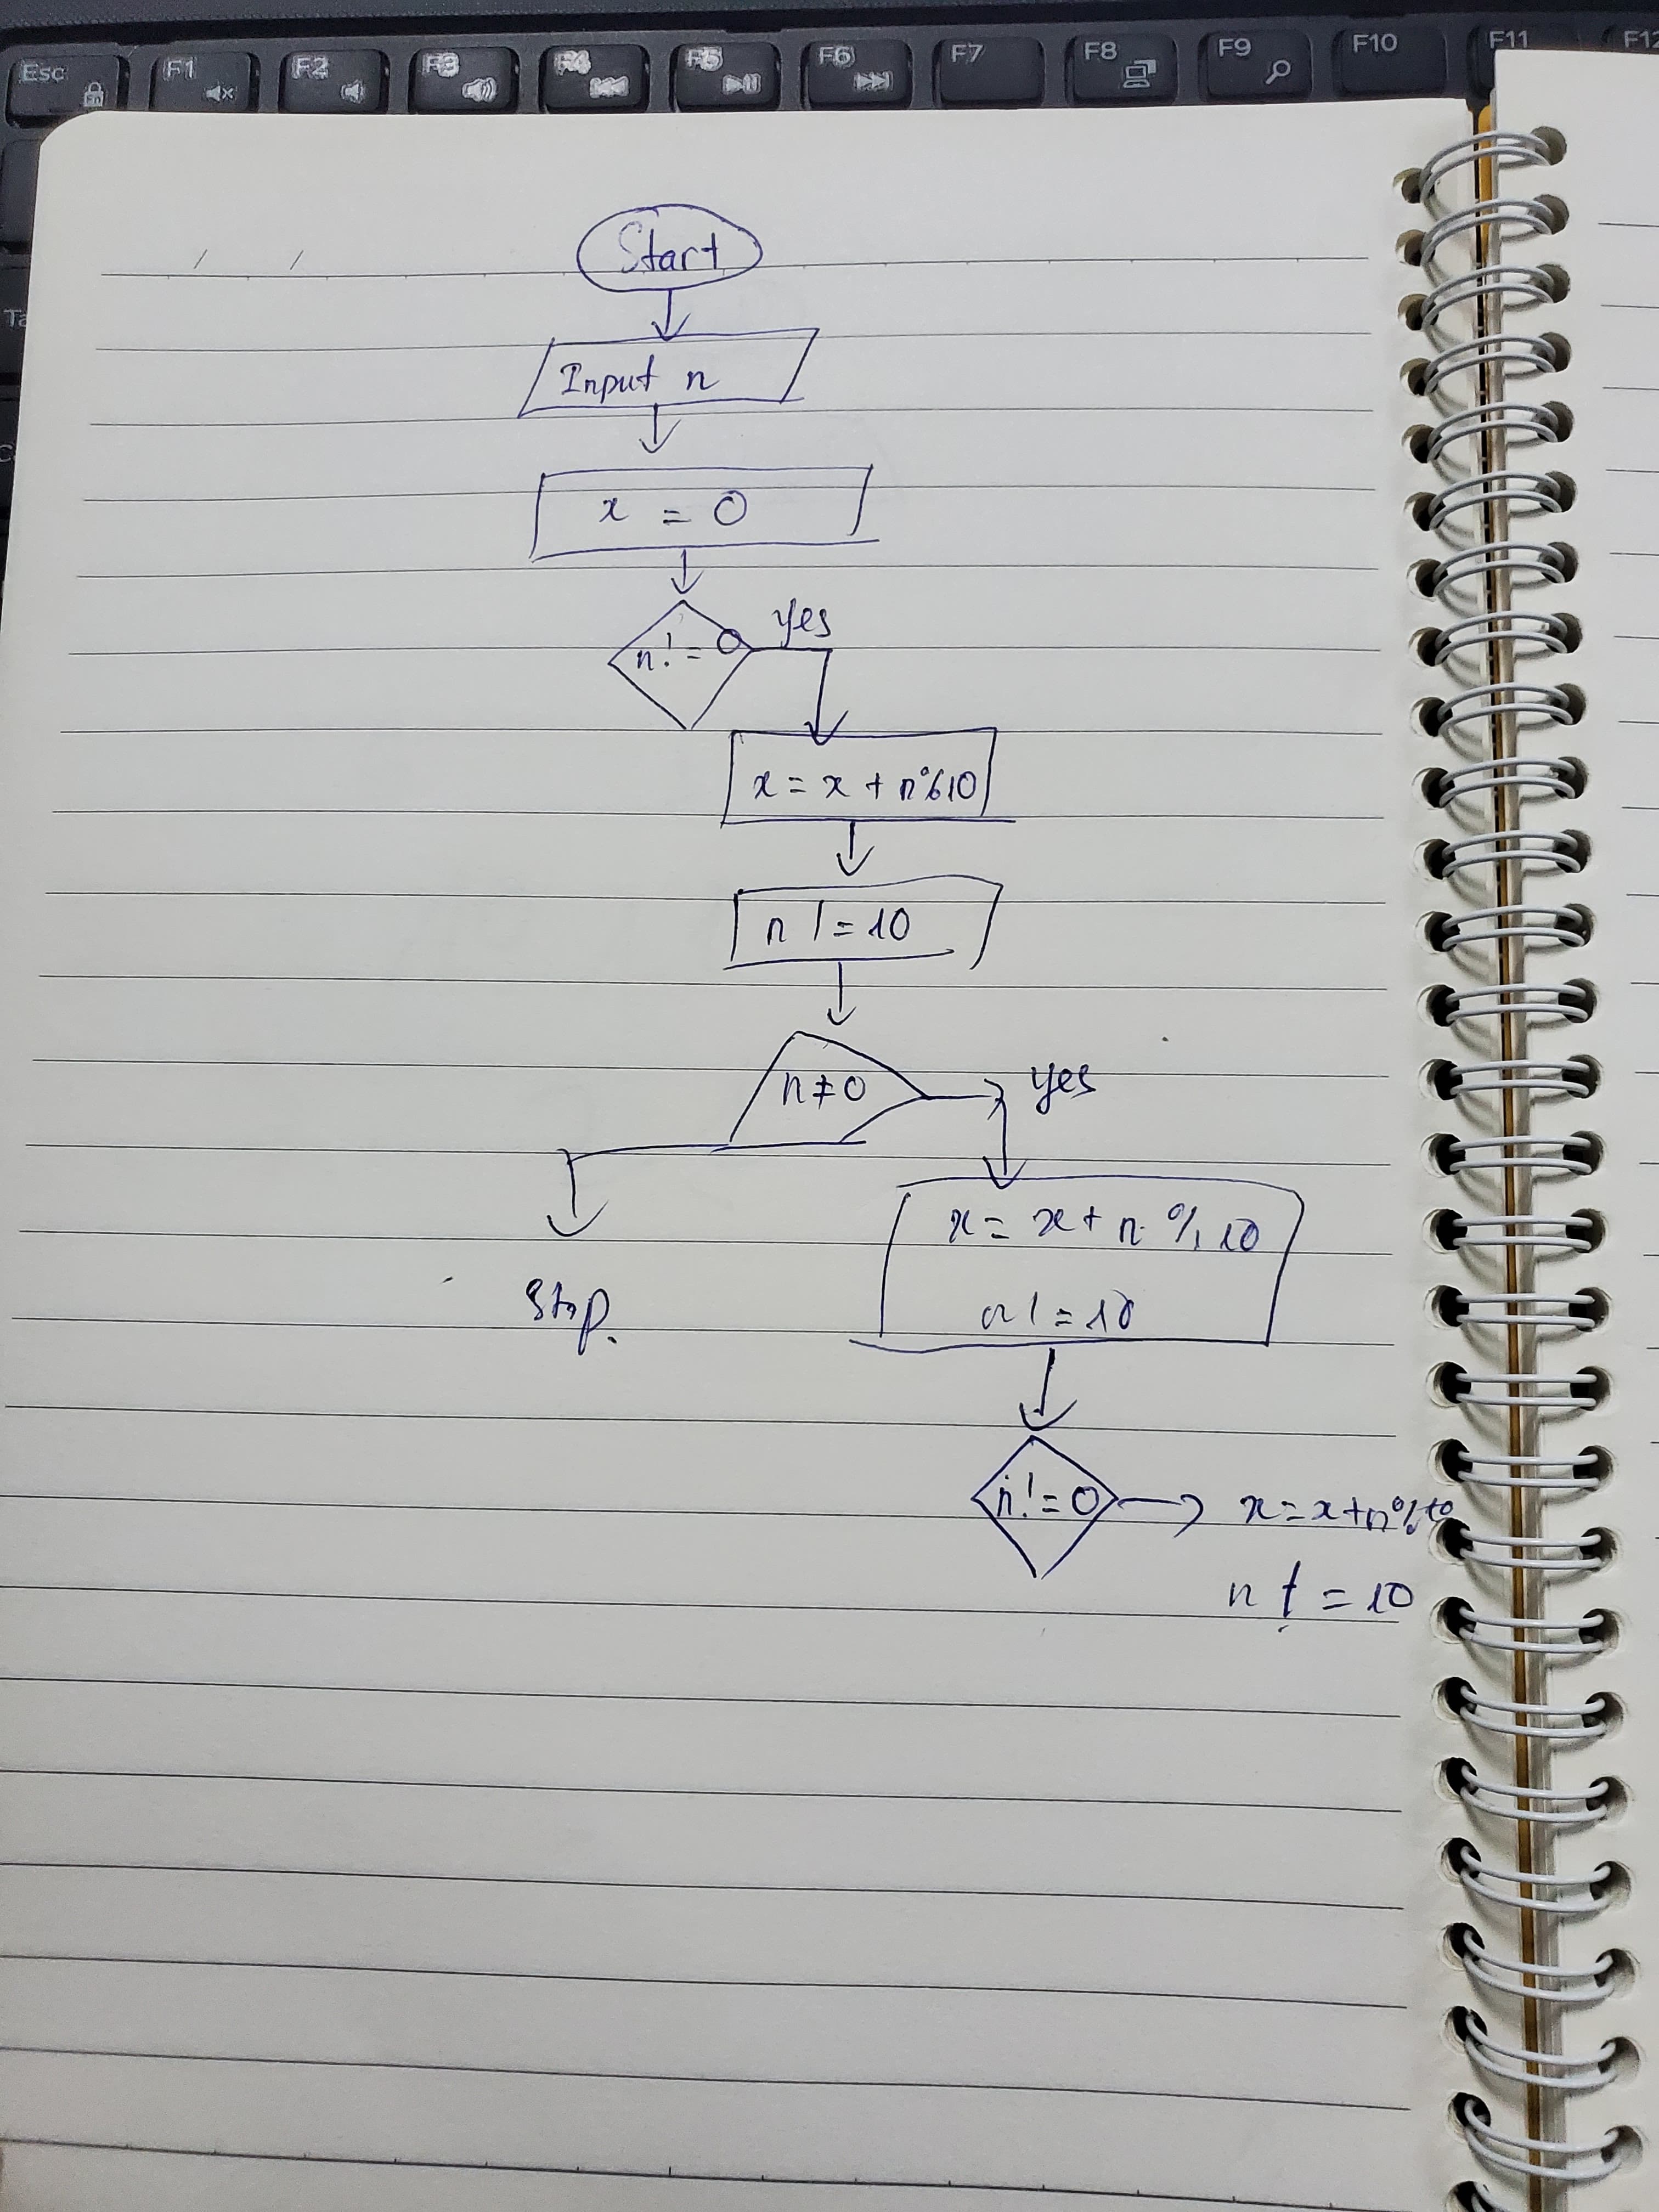 Esc
F1
F2
F3
F4
F5
F6
F7
F8
F9
F10
F11
F12
Start
Input n
x = 0
n! = 0 yes
x = x + n%10
n /= 10
n ≠ 0 yes
x = x + n % 10
Stop.
n /= 10
n! = 0 x = x + n%10
n /= 10